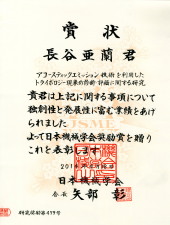 賞状
長谷亜蘭君
アコースティックエミッション技術を利用した
トライボロジー現象の診断・評価に関する研究
貴君は上記に関する事項について
独創性と発展性に富む業績をあげ
られました
よって日本機械学会奨励賞を贈り
これを表彰します
日本機械学会
会長 矢部 彰
JSME